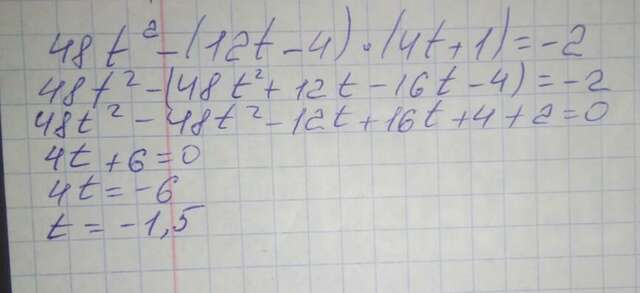 48t² - (12t - 4) · (4t + 1) = -2
48t² - (48t² + 12t - 16t - 4) = -2
48t² - 48t² - 12t + 16t + 4 + 2 = 0
4t + 6 = 0
4t = -6
t = -1,5